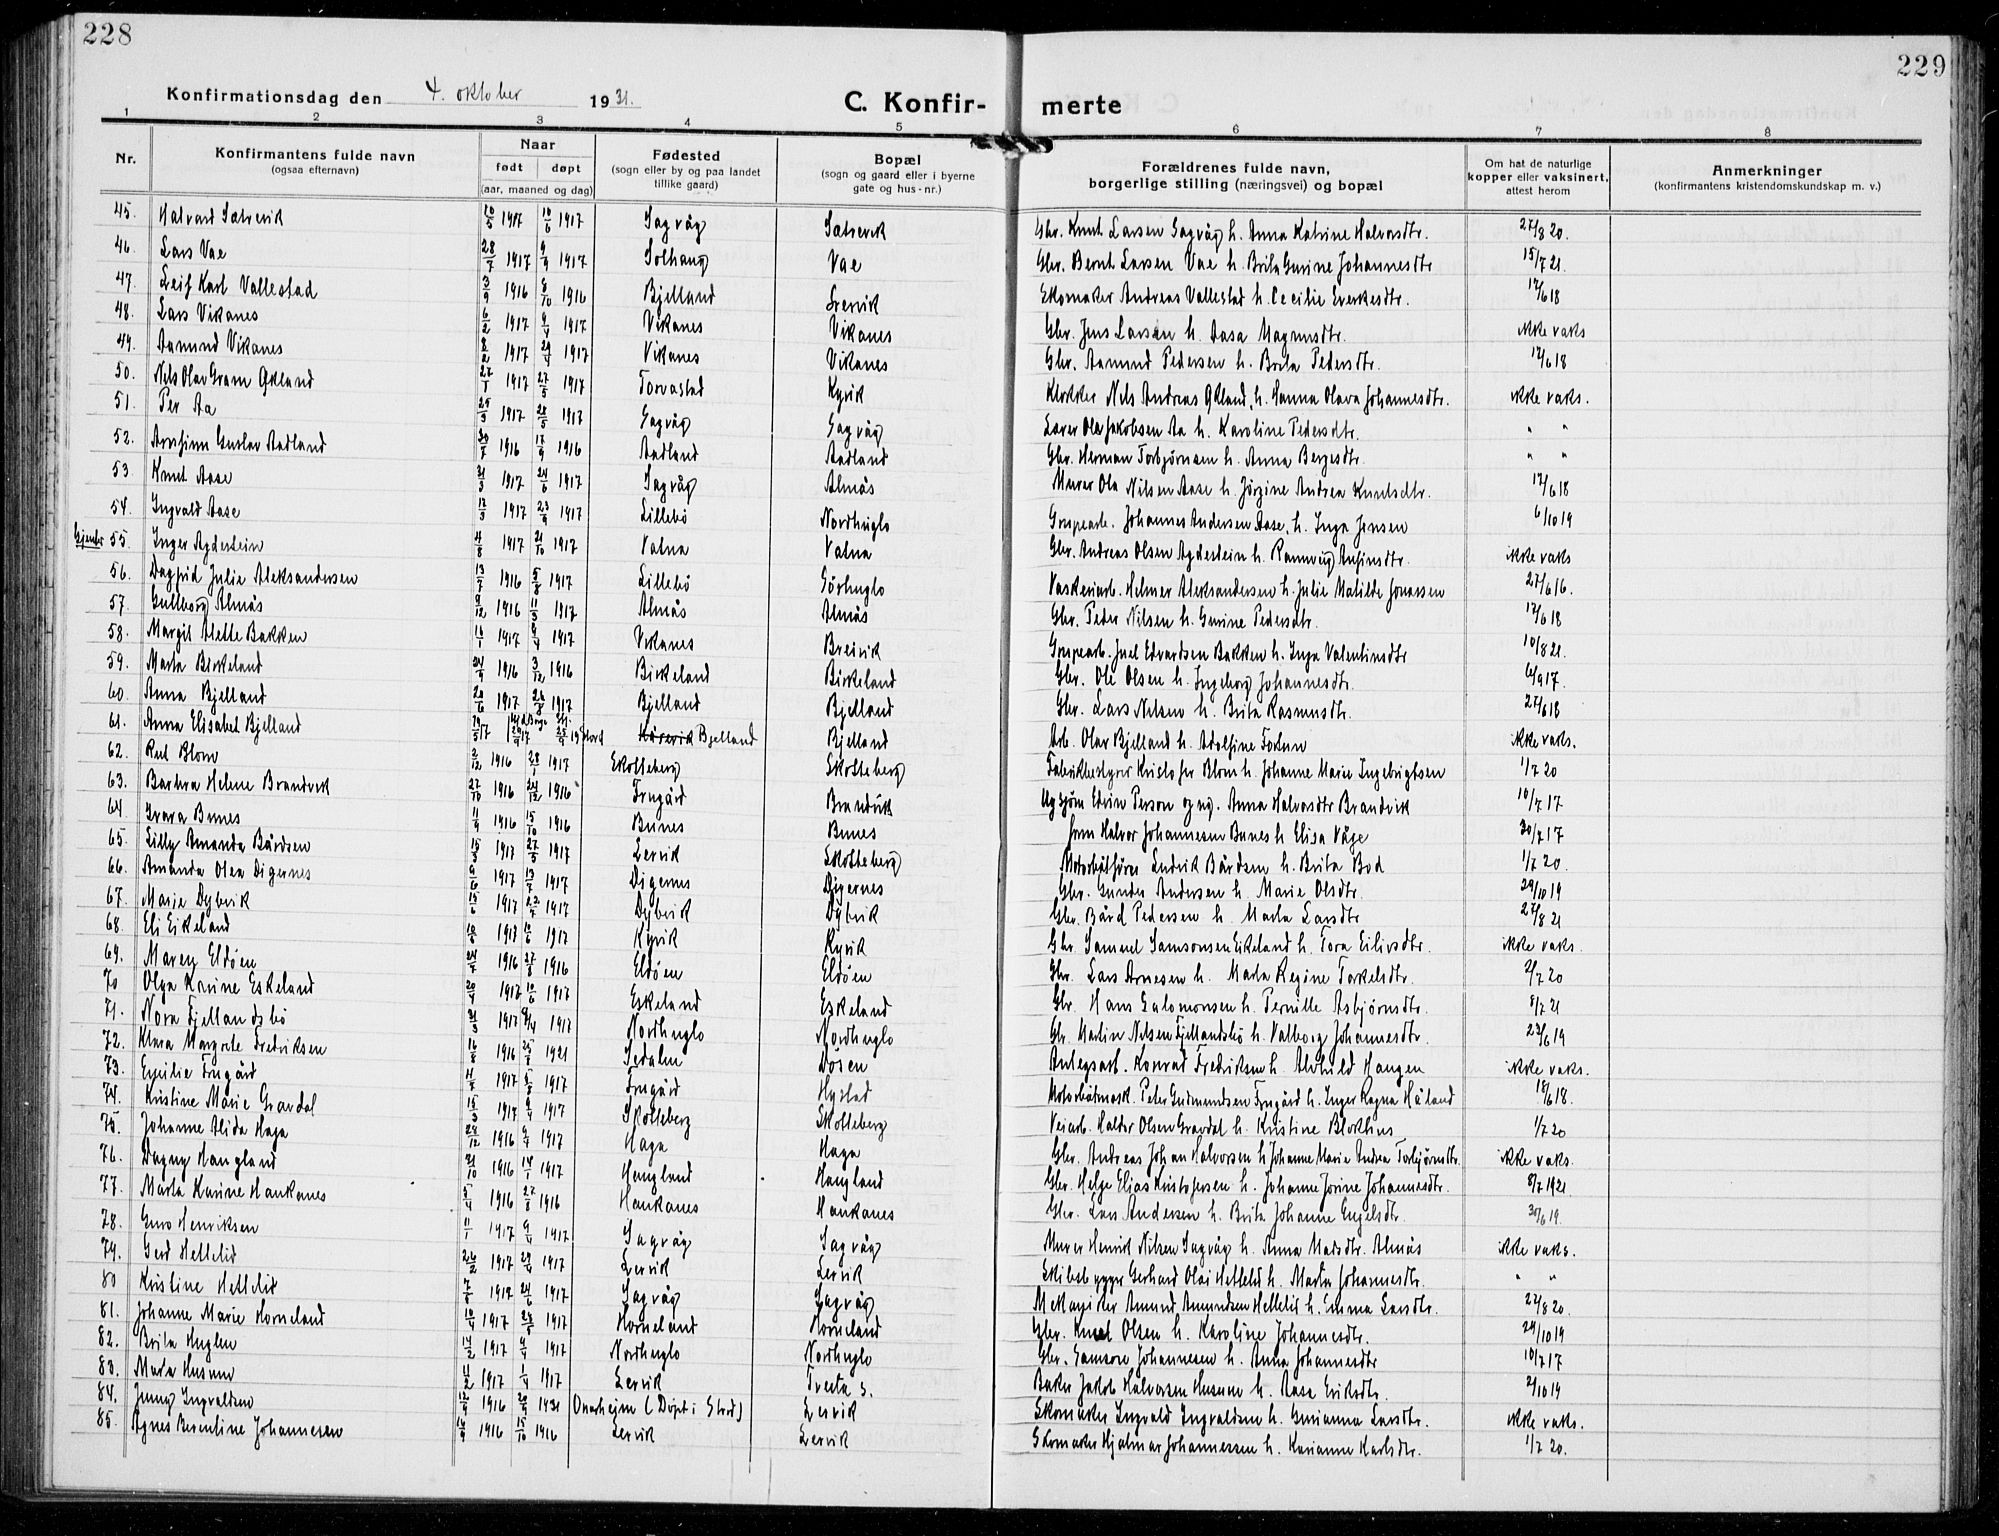 228
229
Konfirmationsdag den 4. oktober 1931.
C. Konfir- merte
1 2 3 4 5 6 7 8
Nr.
Konfirmantens fulde navn
(ogsaa efternavn)
Naar
født døpt
(aar, maaned og dag)
Fødested
(sogn eller by og paa landet
tillike gaard)
Bopæl
(sogn og gaard eller i byerne
gate og hus-nr.)
Forældrenes fulde navn,
borgerlige stilling (næringsvei) og bopæl
Om hat de naturlige
kopper eller vaksinert,
attest herom
Anmerkninger
(konfirmantens kristendomskundskap m. v.)
45. Halvard Sætrevik 10/5 1917 10/6 1917 Sagvåg Sætrevik Gbr. Knut Larsen Sagvåg h. Anna Katrine Halvorsdtr. 27/8 20.
46. Lars Vae 28/7 1917 9/9 1917 Solhaug Vae Gbr. Bernt Larsen Vae h. Brita Gurine Johannesdtr 15/7 21.
47. Leif Karl Vallestad 3/9 1916 8/10 1916 Bjelland Lervik Skomaker Andreas Vallestad h. Cecilie Sverkesdtr. 17/6 18
48. Lars Vikanes 6/2 1917 9/4 1917 Vikanes Vikanes Gbr. Jens Larsen h. Aasa Magnusdtr. ikke vaks
49. Aamund Vikanes 8/2 1917 29/4 1917 Vikanes Vikanes Gbr. Aamund Pedersen h. Brita Pedersdtr. 17/6 18
50. Nils Olav Gram Økland 27/1 1917 27/5 1917 Torvastad Kyvik Klokker Nils Andreas Økland, h. Hanna Olava Johannesdtr. ikke vaks.
51. Per Aa 25/3 1917 28/5 1917 Sagvåg Sagvåg Lærer Ole Jakobsen Aa h. Karoline Pedersdtr. " "
52. Arnfinn Gustav Aadland 30/7 1916 17/9 1916 Aadland Aadland Gbr. Herman Torbjørnsen h. Anna Bergesdtr. " "
53. Knut Aase 31/3 1917 24/6 1917 Sagvåg Almås Murer Ola Nilsen Aase h. Jörgine Andrea Knutsdtr. 17/6 18
54. Ingvald Aase 12/3 1917 23/9 1917 Lillebö Nordhuglo Grupearb. Johannes Andersen Aase, h. Inga Jensen 6/10 19
Gjenter 55. Inger Agdestein 4/8 1917 21/10 1917 Valna Valna Gbr. Andreas Olsen Agdestein h. Rannveig Anfinsdtr. ikke vaks
56. Dagfrid Julie Aleksandersen 13/7 1916 5/8 1917 Lillebö Sörhuglo Vaskeriarb. Helmer Aleksandersen h. Julie Matilde Jonassen 27/6 16.
57. Gullborg Almås 9/12 1916 11/3 1917 Almås Almås Gbr. Peder Nilsen h. Gurine Pedersdtr. 17/6 18
58. Margit Alette Bakken 16/1 1917 9/4 1917 Vikanes Breivik Grupearb. Juel Edvardsen Bakken h. Inga Valentinsdtr 10/8 21.
59. Marta Birkeland 24/9 1916 3/12 1916 Birkeland Birkeland Gbr. Ole Olsen h. Ingeborg Johannesdtr. 6/9 17.
60. Anna Bjelland 20/6 1917 26/8 1917 Bjelland Bjelland Gbr. Lars Nilsen h. Brita Rasmusdtr. 27/6 18
61. Anna Elisabet Bjelland 29/5 17 Bjelland Bjelland Arb. Olav Bjelland h. Adolfine Fortun ikke vaks.
62. Rut Blom 2/12 1916 28/1 1917 Skotteberg Skotteberg Fabrikbestyrer Kristofer Blom h. Johanne Marie Ingebrigtsen 1/7 20
63. Barbra Helene Brandvik 27/10 1916 24/12 1916 Frugård Brandvik Ug sjøm Edvin Person og ug. Anna Halvorsdtr Brandvik 10/7 17
64. Ivara Bunes 11/9 1916 15/10 1916 Bunes Bunes Sjöm Halvor Johannesen Bunes h Elisa Våge 30/7 17
65. Lilly Amanda Bårdsen 15/3 1917 27/5 1917 Lervik Skotteberg Motorbåtförer Ludvik Bårdsen h. Brita Bod 1/7 20.
66. Amanda Olea Digernes 9/6 1917 19/7 1917 Digernes Digernes Gbr. Gunder Andersen h. Marie Olsdtr. 29/10 19
67. Marie Dybvik 15/6 1917 22/7 1917 Dybvik Dybvik Gbr. Bård Pedersen h. Marta Larsdtr 27/8 21
68. Eli Eikeland 1917 10/6 1917 Kyvik Kyvik Gbr. Samuel Samsonsen Eikeland h. Tora Eilivsdtr. ikke vaks.
69. Maren Eldöen 24/7 1916 27/8 1916 Eldöen Eldöen Gbr. Lars Arnesen h. Marta Regine Torkelsdtr. 2/7 20
70 Olga Karine Eskeland 20/4 1917 10/6 1917 Eskeland Eskeland Gbr. Hans Salomonsen h. Pernille Asbjørnsdtr. 8/7 21
71. Nora Fjellandsbö 31/3 1917 9/4 1917 Nordhuglo Nordhuglo Gbr. Martin Nilsen Fjellandsbö h. Valborg Johannesdtr. 23/6 19
72. Klara Margrete Fredriksen 16/8 1916 25/8 1921 Dösen Anlegsarb. Konrad Fredriksen h. Alvhild Haugen ikke vaks.
73. Emilie Frugård 11/7 1917 5/8 1917 Frugård Hystad Motorbåtmask. Peter Gudmundsen Frugård h. Inger Ragna Håland 18/6 18.
74. Kristine Marie Gravdal 15/3 1917 9/4 1917 Skotteberg Skotteberg Veiarb. Haldor Olsen Gravdal h. Kristine Blokhus 1/7 20
75. Johanne Alida Haga 24/12 1916 9/4 1917 Haga Haga Gbr. Andreas Johan Halvorsen h Johanne Marie Andrea Torbjørnsdtr. ikke vaks.
76. Dagny Haugland 31/10 1916 14/1 1917 Haugland Haugland Gbr. Helge Elias Kristofersen h. Johanne Jorine Johannesdtr. 8/7 1921
77. Marta Karine Haukanes 5/4 1916 27/8 1916 Haukanes Haukanes Gbr. Lars Andersen h. Brita Johanne Engelsdtr. 30/6 19.
78. Guro Henriksen 11/1 1917 9/4 1917 Sagvåg Sagvåg Murer Henrik Nilsen Sagvåg h. Anna Madsdtr. Almås ikke vaks.
79. Gerd Hettelid 26/2 1917 29/4 1917 Lervik Lervik Skibsbygger Gerhard Olai Hettelid h. Marta Johannesdtr. " "
80 Kristine Hettelid 7/5 1917 24/6 1917 Sagvåg Sagvåg Mekaniker Amund Amundsen Hettelid h. Emma Larsdtr. 27/8 20.
81. Johanne Marie Horneland 10/4 1917 28/5 1917 Horneland Horneland Gbr. Knut Olsen h. Karoline Johannesdtr. 29/10 19
82. Brita Huglen 14/2 1917 9/4 1917 Nordhuglo Nordhuglo Gbr. Samson Johannesen h. Anna Johannesdtr 10/7 17
83. Marta Husum 11/2 1917 1/4 1917 Lervik Tveita s. Baker Jakob Halvorsen Husum h. Aase Eriksdtr. 2/10 19
84. Jenny Ingvaldsen 1916 1921 Onarheim (Döpt i Stord) Lervik Skomaker Ingvald Ingvaldsen h. Gurianna Larsdtr. ikke vaks.
85. Agnes Berentine Johannesen 16/9 1916 15/10 1916 Lervik Lervik Skomaker Hjalmar Johannessen h. Karianne Karlsdtr. 1/7 20.